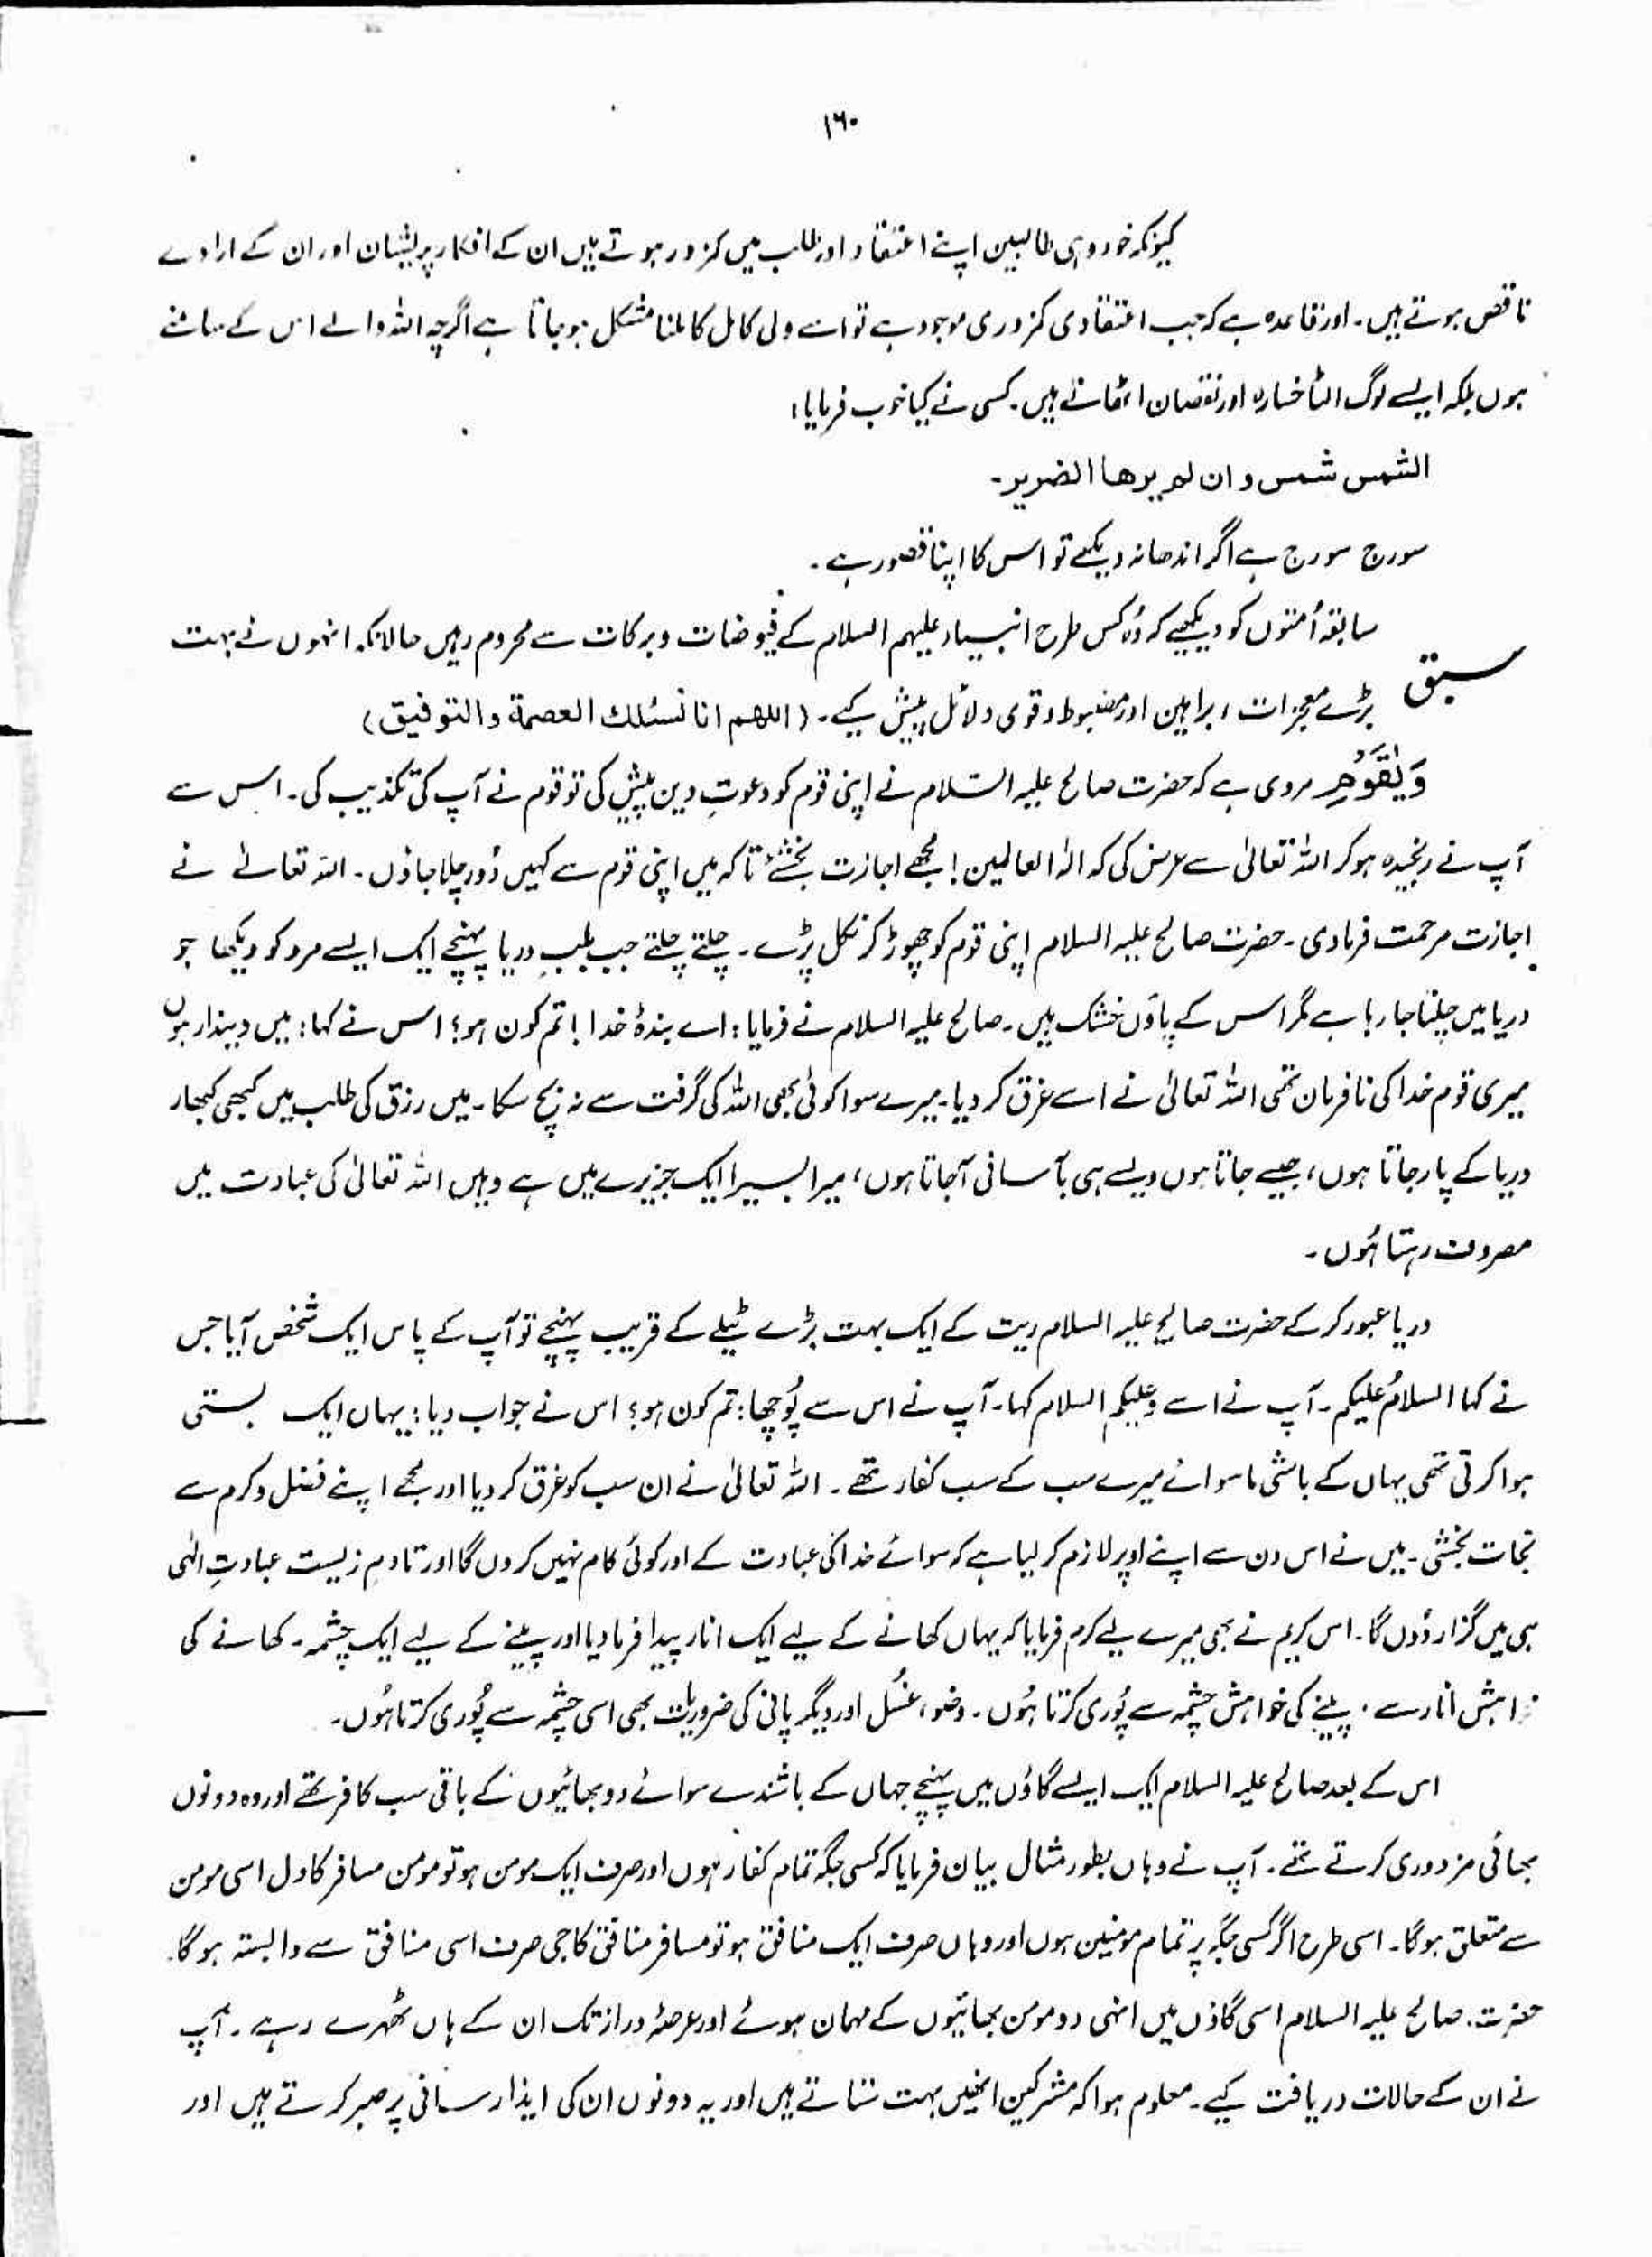 ۱۶۰
کیونکہ خود وہی طالبین اپنے اعتقاد اور طلب میں کمزور ہوتے ہیں ان کے افکار پریشان اور ان کے ارادے
ناقص ہوتے ہیں۔ اور قاعدہ ہے کہ جب اعتقادی کمزوری موجود ہے تو اسے ولی کامل کا ملنا مشکل ہو جاتا ہے اگرچہ اللہ والے اس کے سامنے
ہوں بلکہ ایسے لوگ الٹا خسارہ اور نقصان اٹھاتے ہیں۔ کسی نے کیا خوب فرمایا:
الشمس شمس و ان لم یرھا الضریر۔
سورج سورج ہے اگر اندھا نہ دیکھے تو اس کا اپنا قصور ہے۔
سابقہ اُمتوں کو دیکھیے کہ وُہ کس طرح انبیاء علیہم السلام کے فیوضات و برکات سے محروم رہیں حالانکہ انہوں نے بہت
سبق
بڑے معجزات، براہین اور مضبوط و قوی دلائل پیش کیے۔ (اللھم انا نسئلك العصمة والتوفیق)
وَيٰقَوْمِ مروی ہے کہ حضرت صالح علیہ السّلام نے اپنی قوم کو دعوتِ دین پیش کی تو قوم نے آپ کی تکذیب کی۔ اس سے
آپ نے رنجیدہ ہو کر اللہ تعالیٰ سے عرض کی کہ الٰہ العالمین! مجھے اجازت بخشئے تاکہ میں اپنی قوم سے کہیں دُور چلا جاؤں۔ اللہ تعالےٰ نے
اجازت مرحمت فرما دی۔ حضرت صالح علیہ السلام اپنی قوم کو چھوڑ کر نکل پڑے۔ چلتے چلتے جب بلبِ دریا پہنچے ایک ایسے مرد کو دیکھا جو
دریا میں چلتا جا رہا ہے مگر اس کے پاؤں خشک ہیں۔ صالح علیہ السلام نے فرمایا: اے بندۂ خدا! تم کون ہو؟ اس نے کہا: میں دیندار ہوں
میری قوم خدا کی نافرمان تھی اللہ تعالیٰ نے اسے غرق کر دیا۔ میرے سوا کوئی بھی اللہ کی گرفت سے نہ بچ سکا۔ میں رزق کی طلب میں کبھی کبھار
دریا کے پار جاتا ہوں، جیسے جاتا ہوں ویسے ہی بآسانی آجاتا ہوں، میرا بسیرا ایک جزیرے میں ہے وہیں اللہ تعالیٰ کی عبادت میں
مصروف رہتا ہُوں۔
دریا عبور کر کے حضرت صالح علیہ السلام ریت کے ایک بہت بڑے ٹیلے کے قریب پہنچے تو آپ کے پاس ایک شخص آیا جس
نے کہا السلامُ علیکم۔ آپ نے اسے وعلیکم السلام کہا۔ آپ نے اس سے پُوچھا: تم کون ہو؟ اس نے جواب دیا: یہاں ایک بستی
ہوا کرتی تھی یہاں کے باشی ماسوائے میرے سب کے سب کفار تھے۔ اللہ تعالیٰ نے ان سب کو غرق کر دیا اور مجھے اپنے فضل و کرم سے
نجات بخشی۔ میں نے اس دن سے اپنے اوپر لازم کر لیا ہے کہ سوائے خدا کی عبادت کے اور کوئی کام نہیں کروں گا اور تادمِ زیست عبادتِ الٰہی
ہی میں گزار دُوں گا۔ اس کریم نے بھی میرے لیے کرم فرمایا کہ یہاں کھانے کے لیے ایک انار پیدا فرما دیا اور پینے کے لیے ایک چشمہ۔ کھانے کی
خواہش انار سے، پینے کی خواہش چشمہ سے پُوری کرتا ہُوں۔ وضو، غسُل اور دیگر پانی کی ضروریات بھی اسی چشمہ سے پُوری کرتا ہُوں۔
اس کے بعد صالح علیہ السلام ایک ایسے گاؤں میں پہنچے جہاں کے باشندے سوائے دو بھائیوں کے باقی سب کافر تھے اور وہ دونوں
بھائی مزدوری کرتے تھے۔ آپ نے وہاں بطور مثال بیان فرمایا کہ کسی جگہ تمام کفار ہوں اور صرف ایک مومن ہو تو مومن مسافر کا دل اسی مومن
سے متعلق ہوگا۔ اسی طرح اگر کسی جگہ پر تمام مومنین ہوں اور وہاں صرف ایک منافق ہو تو مسافر منافق کا جی صرف اسی منافق سے وابستہ ہوگا۔
حضرت صالح علیہ السلام اسی گاؤں میں انہی دو مومن بھائیوں کے مہمان ہوئے اور عرصۂ دراز تک ان کے ہاں ٹھہرے رہے۔ آپ
نے ان کے حالات دریافت کیے۔ معلوم ہوا کہ مشرکین انھیں بہت ستاتے ہیں اور یہ دونوں ان کی ایذا رسانی پر صبر کرتے ہیں اور